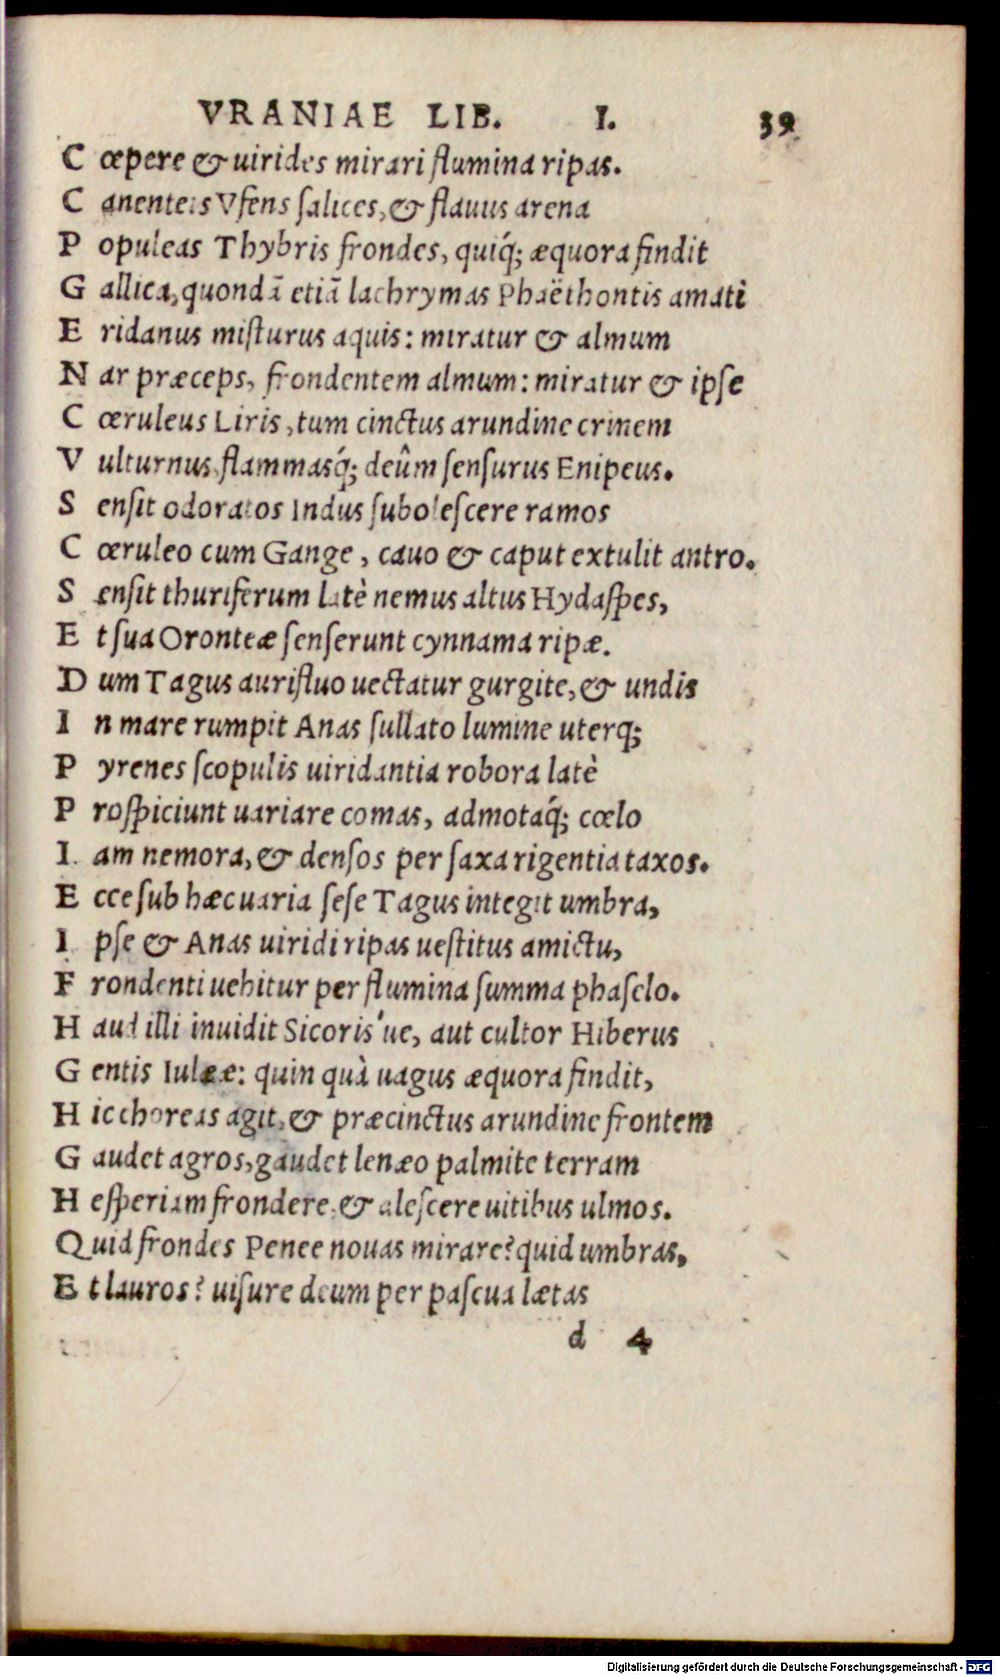 VRANIAE LIB. I. 39
C œpere & uirides mirari flumina ripas.
C anenteis Vfens ſalices, & flauus arena
P opuleas Thybris frondes, quiq́; æquora findit
G allica, quondā etiā lachrymas Phaëthontis amati
E ridanus miſturus aquis: miratur & almum
N ar præceps, frondentem almum: miratur & ipſe
C œruleus Liris, tum cinctus arundine crinem
V ulturnus, flammasq́; deûm ſenſurus Enipeus.
S enſit odoratos Indus ſuboleſcere ramos
C œruleo cum Gange, cauo & caput extulit antro.
S enſit thuriferum latè nemus altus Hydaſpes,
E t ſua Oronteæ ſenſerunt cynnama ripæ.
D um Tagus aurifluo uectatur gurgite, & undis
I n mare rumpit Anas ſullato lumine uterq;
P yrenes ſcopulis uiridantia robora latè
P roſpiciunt uariare comas, admotaq́; cœlo
I am nemora, & denſos per ſaxa rigentia taxos.
E cce ſub hæc uaria ſeſe Tagus integit umbra,
I pſe & Anas uiridi ripas ueſtitus amictu,
F rondenti uehitur per flumina ſumma phaſelo.
H aud illi inuidit Sicoris'ue, aut cultor Hiberus
G entis Iulææ: quin quà uagus æquora findit,
H ic choreas agit, & præcinctus arundine frontem
G audet agros, gaudet lenæo palmite terram
H eſperiam frondere, & aleſcere uitibus ulmos.
Q uid frondes Penee nouas mirare? quid umbras,
E t lauros? uiſure deum per paſcua lætas
d 4
Digitalisierung gefördert durch die Deutsche Forschungsgemeinschaft - DFG